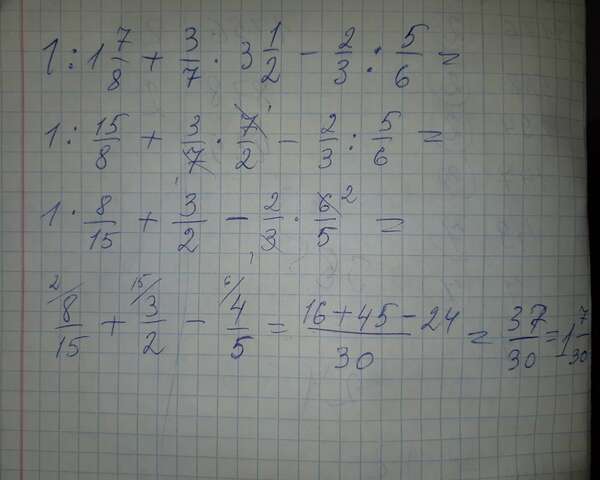 1 : 1 7/8 + 3/7 · 3 1/2 - 2/3 : 5/6 =
1 : 15/8 + 3/7 · 7/2 - 2/3 : 5/6 =
1 · 8/15 + 3/2 - 2/3 · 6/5 =
8/15 + 3/2 - 4/5 = (16 + 45 - 24)/30 = 37/30 = 1 7/30